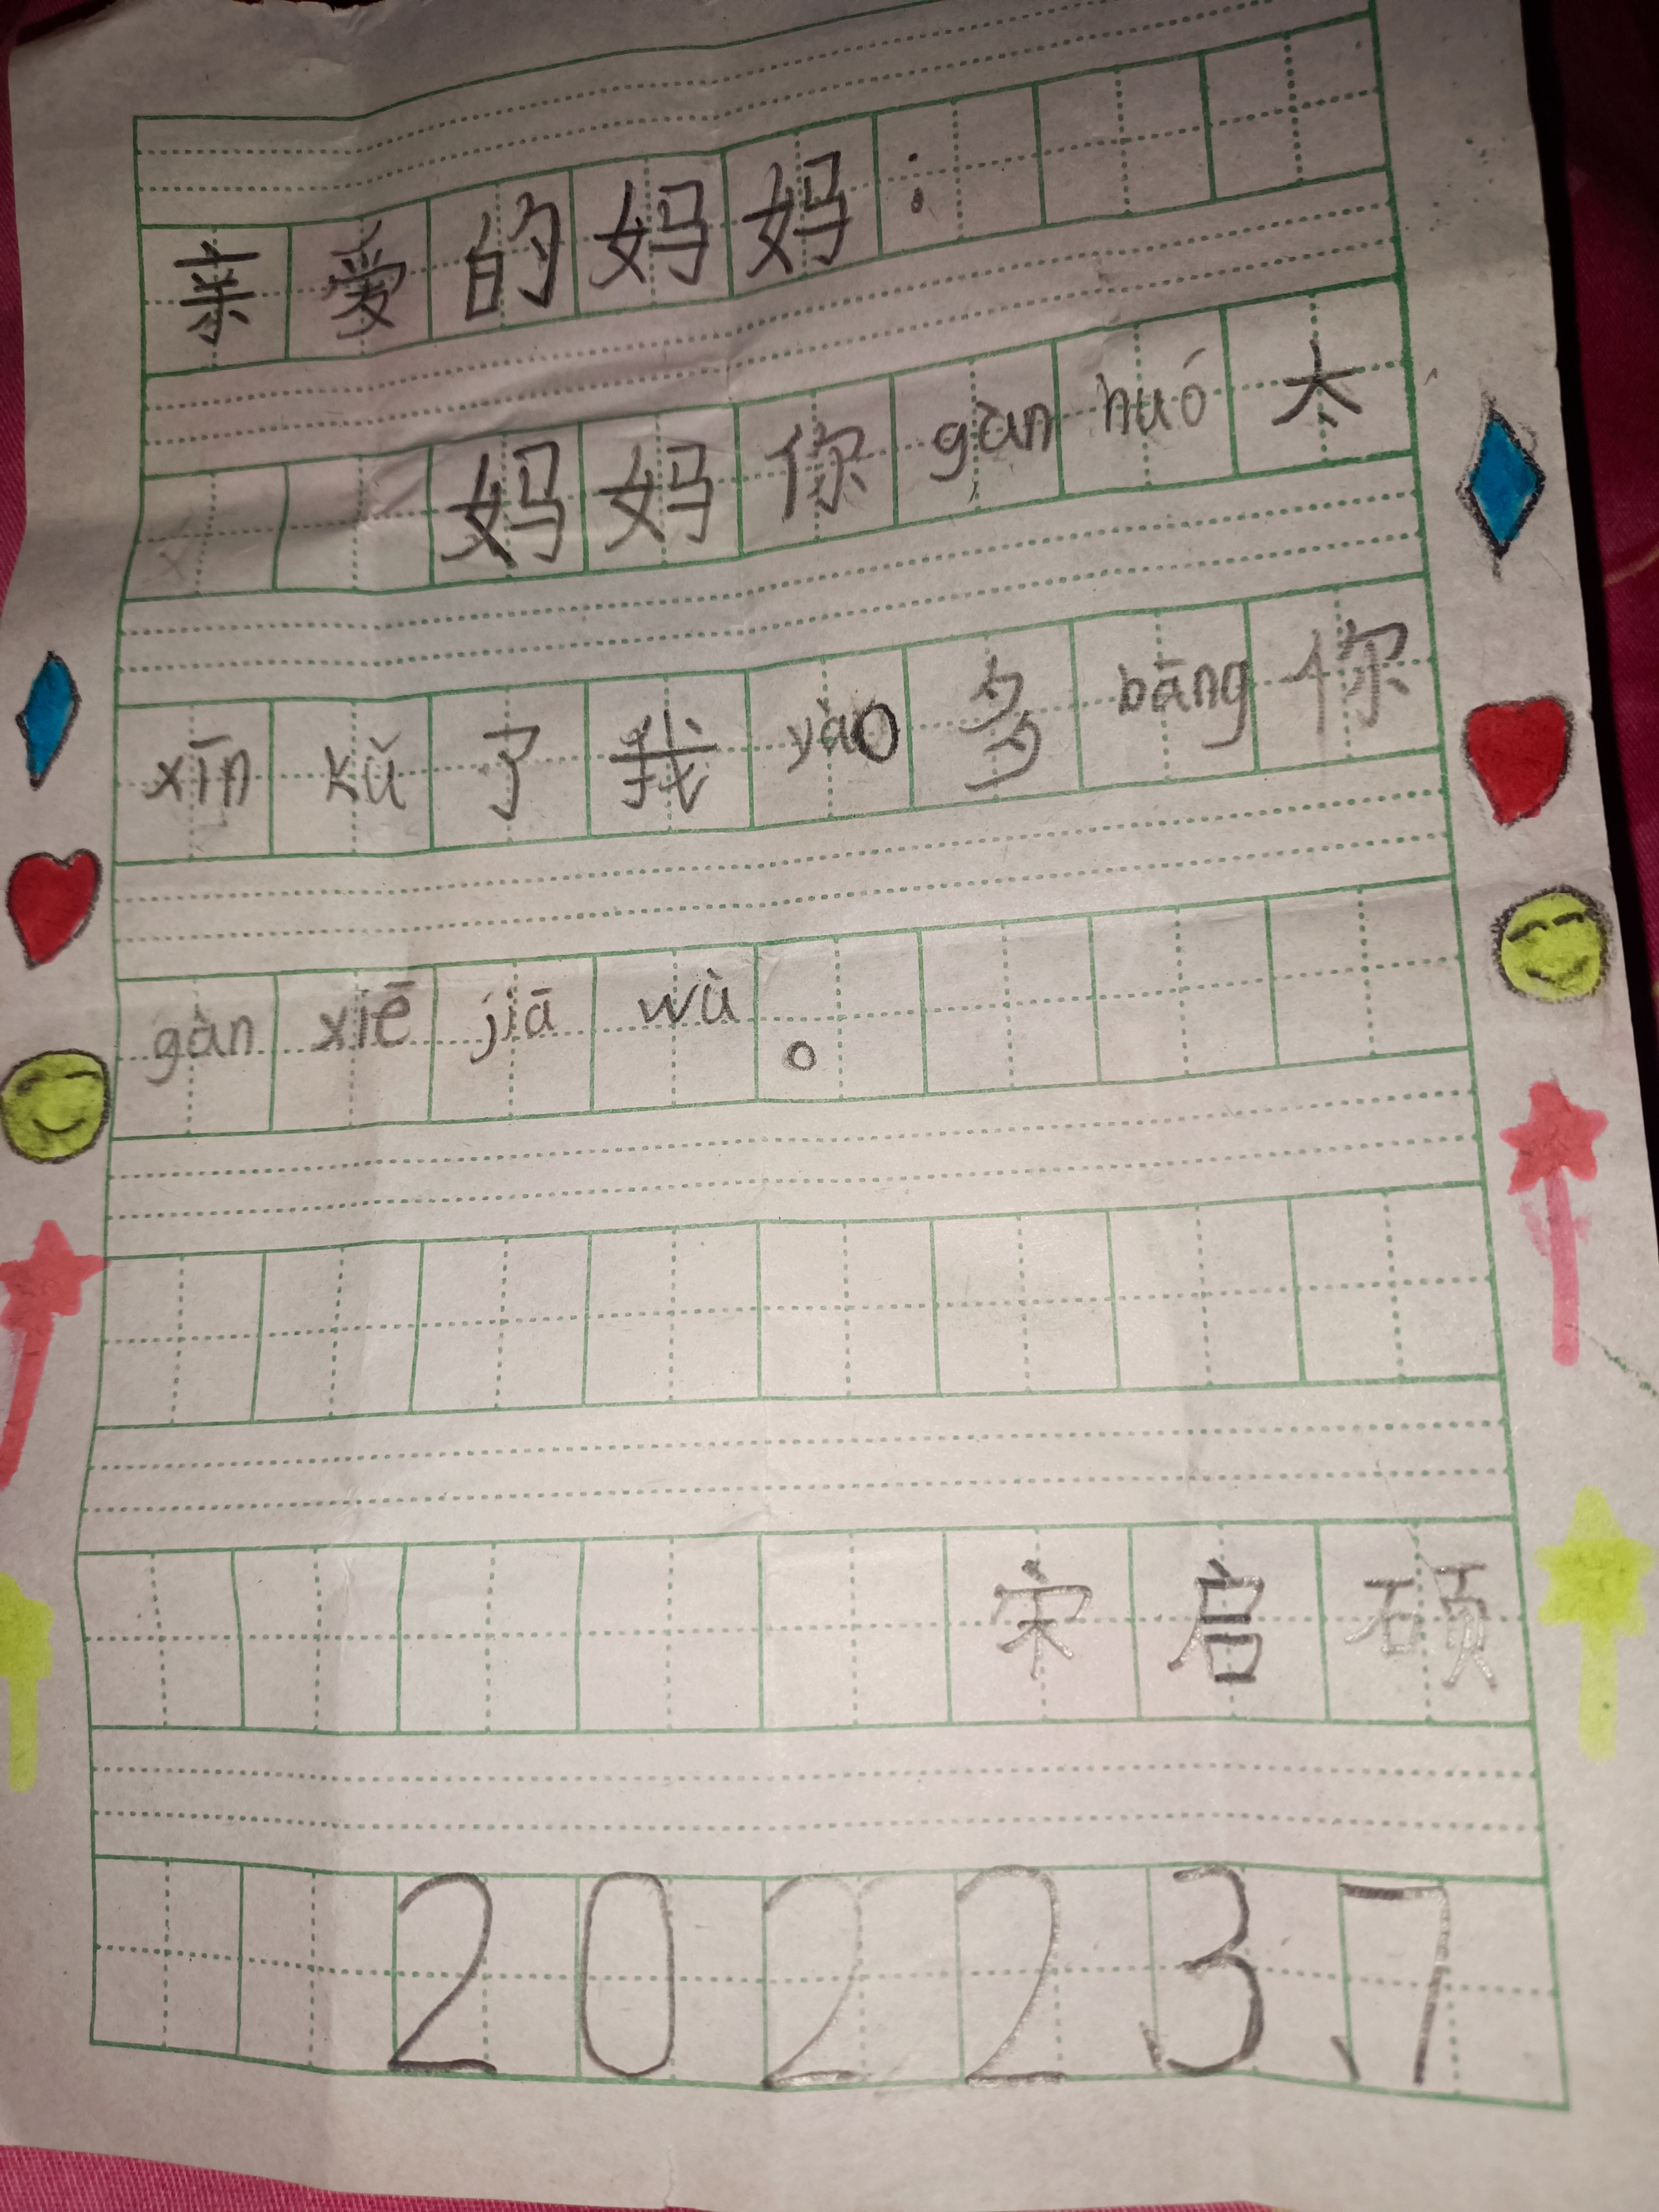 亲爱的妈妈:
妈妈你gàn huó太
xīn kǔ了我yào多bāng你
gàn xiē jiā wù。
宋启硕
2022、3、7